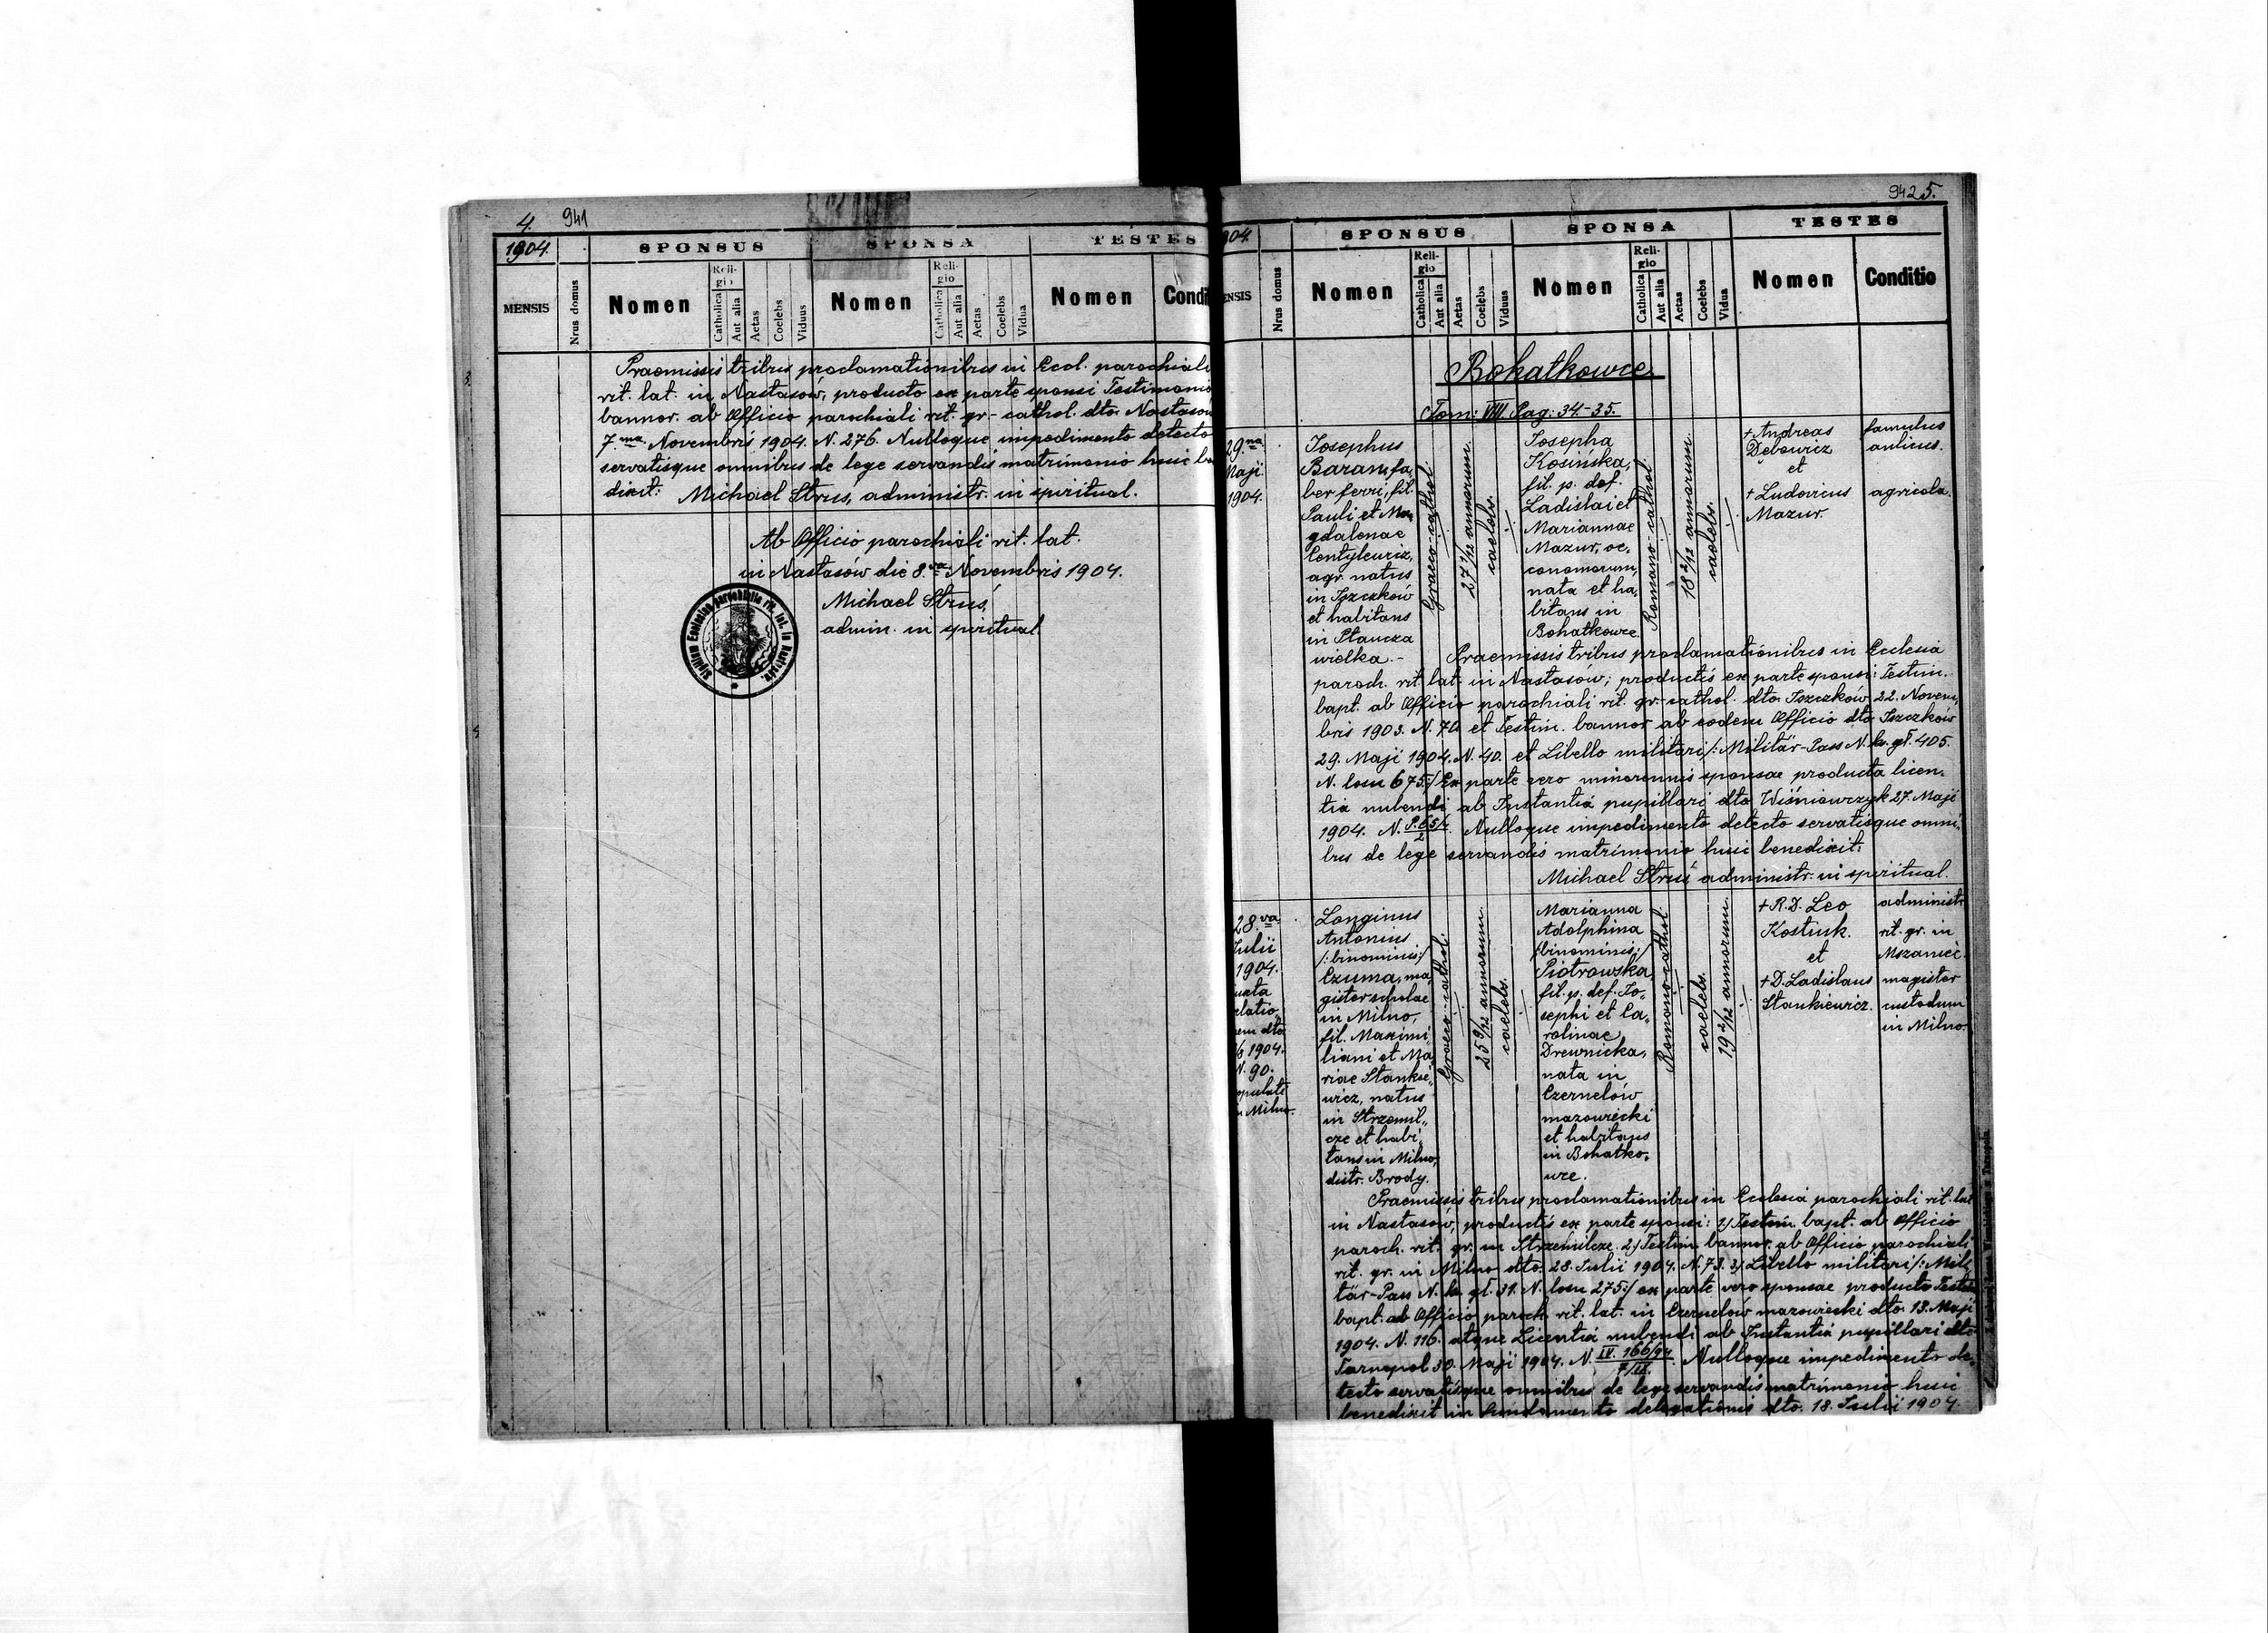 4. 941
1904.
SPONSUS SPONSA TESTES
MENSIS
Nrus domus
Nomen
Religio
Catholica
Aut alia
Aetas
Coelebs
Viduus
Nomen
Religio
Catholica
Aut alia
Aetas
Coelebs
Vidua
Nomen
Condi
Praemissis tribus proclamationibus in Eccl. parochiali
rit. lat. in Nastasów, producto ex parte sponsi Testimonio
bannor. ab Officio parochiali rit. gr.-cathol. dto. Nastasów
7.ma Novembris 1904. N. 276. Nulloque impedimento detecto
servatisque omnibus de lege servandis matrimonio huic be
dixit: Michael Struś, administr. in spiritual.
Ab Officio parochiali rit. lat.
in Nastasów die 8.va Novembris 1904.
Michael Struś,
admin. in spiritual.
Sigillum Ecclesiae parochialis rit. lat. in Nastasów.
942 5.
904.
SPONSUS SPONSA TESTES
ENSIS
Nrus domus
Nomen
Religio
Catholica
Aut alia
Aetas
Coelebs
Viduus
Nomen
Religio
Catholica
Aut alia
Aetas
Coelebs
Vidua
Nomen
Conditio
Bohatkowce.
Tom: VIII. Pag: 34-35.
29.na
Maji
1904.
Josephus
Baran, fa„
ber ferri, fil.
Pauli et Ma„
gdalenae
Centylewicz,
agr. natus
in Iszczków
et habitans
in Płaucza
wielka.-
Graeco-cathol.
27 1/12 annorum.
caelebs.
Josepha
Kosińska,
fil. p. def.
Ladislai et
Mariannae
Mazur, oe„
conomorum,
nata et ha„
bitans in
Bohatkowce.
Romano-cathol.
18 2/12 annorum.
caelebs.
+ Andreas
Dębowicz
et
+ Ludovicus
Mazur.
famulus
aulicus.
agricola.
Praemissis tribus proclamationibus in Ecclesia
paroch. rit. lat. in Nastasów; productis ex parte sponsi: Testim.
bapt. ab Officio parochiali rit. gr.-cathol. dto. Iszczków 22. Novem„
bris 1903. N. 70. et Testim. bannor. ab eodem Officio dto. Iszczków
29. Maji 1904. N. 40. et Libello militari /: Militär-Pass N. ks. gł. 405.
N. losu 675:/ Ex parte vero minorennis sponsae producta licen„
tia nubendi ab Instantiá pupillari dto. Wiśniowczyk 27. Maji
1904. N. P. 65/4/2. Nulloque impedimento detecto servatisque omni„
bus de lege servandis matrimonio huic benedixit:
Michael Struś administr. in spiritual.
28.va
Julii
1904.
uxta
elatio„
nem dto.
/8 1904.
N. 90.
opulati
n Milno.
Longinus
Antonius
/:binominis:/
Czuma, ma„
gister scholae
in Milno,
fil. Maximi„
liani et Ma„
riae Stankie„
wicz, natus
in Strzemil„
cze et habi„
tans in Milno,
distr. Brody.
Graeco-cathol.
25 9/12 annorum.
caelebs.
Marianna
Adolphina
/:binominis:/
Piotrowska
fil. p. def. Jo„
sephi et Ca„
rolinae
Drewnicka,
nata in
Czernelów
mazowiecki
et habitans
in Bohatko„
wce.
Romano-cathol.
caelebs.
19 2/12 annorum.
+ R.D. Leo
Kostiuk.
et
+ D. Ladislaus
Stankiewicz.
administr.
rit. gr. in
Mszaniec.
magister
custodum
in Milno.
Praemissis tribus proclamationibus in Ecclesiá parochiali rit. lat.
in Nastasów; productis ex parte sponsi: 1/ Testim. bapt. ab Officio
paroch. rit. gr. in Strzemilcze. 2/ Testim. bannor. ab Officio parochiali
rit. gr. in Milno dto. 28. Julii 1904. N. 73. 3/ Libello militari /: Mili„
tär-Pass N. ks. gł. 31. N. losu 275:/ ex parte vero sponsae producto Testim.
bapt. ab Officio paroch. rit. lat. in Czernelów mazowiecki dto. 13. Maji
1904. N. 116. atque Licentiá nubendi ab Instantiá pupillari dto.
Tarnopol 30. Maji 1904. N. IV. 166/94/7/IX. Nulloque impedimento de„
tecto servatisque omnibus de lege servandis matrimonio huic
benedixit in fundamento delegationis dto. 18. Julii 1904.